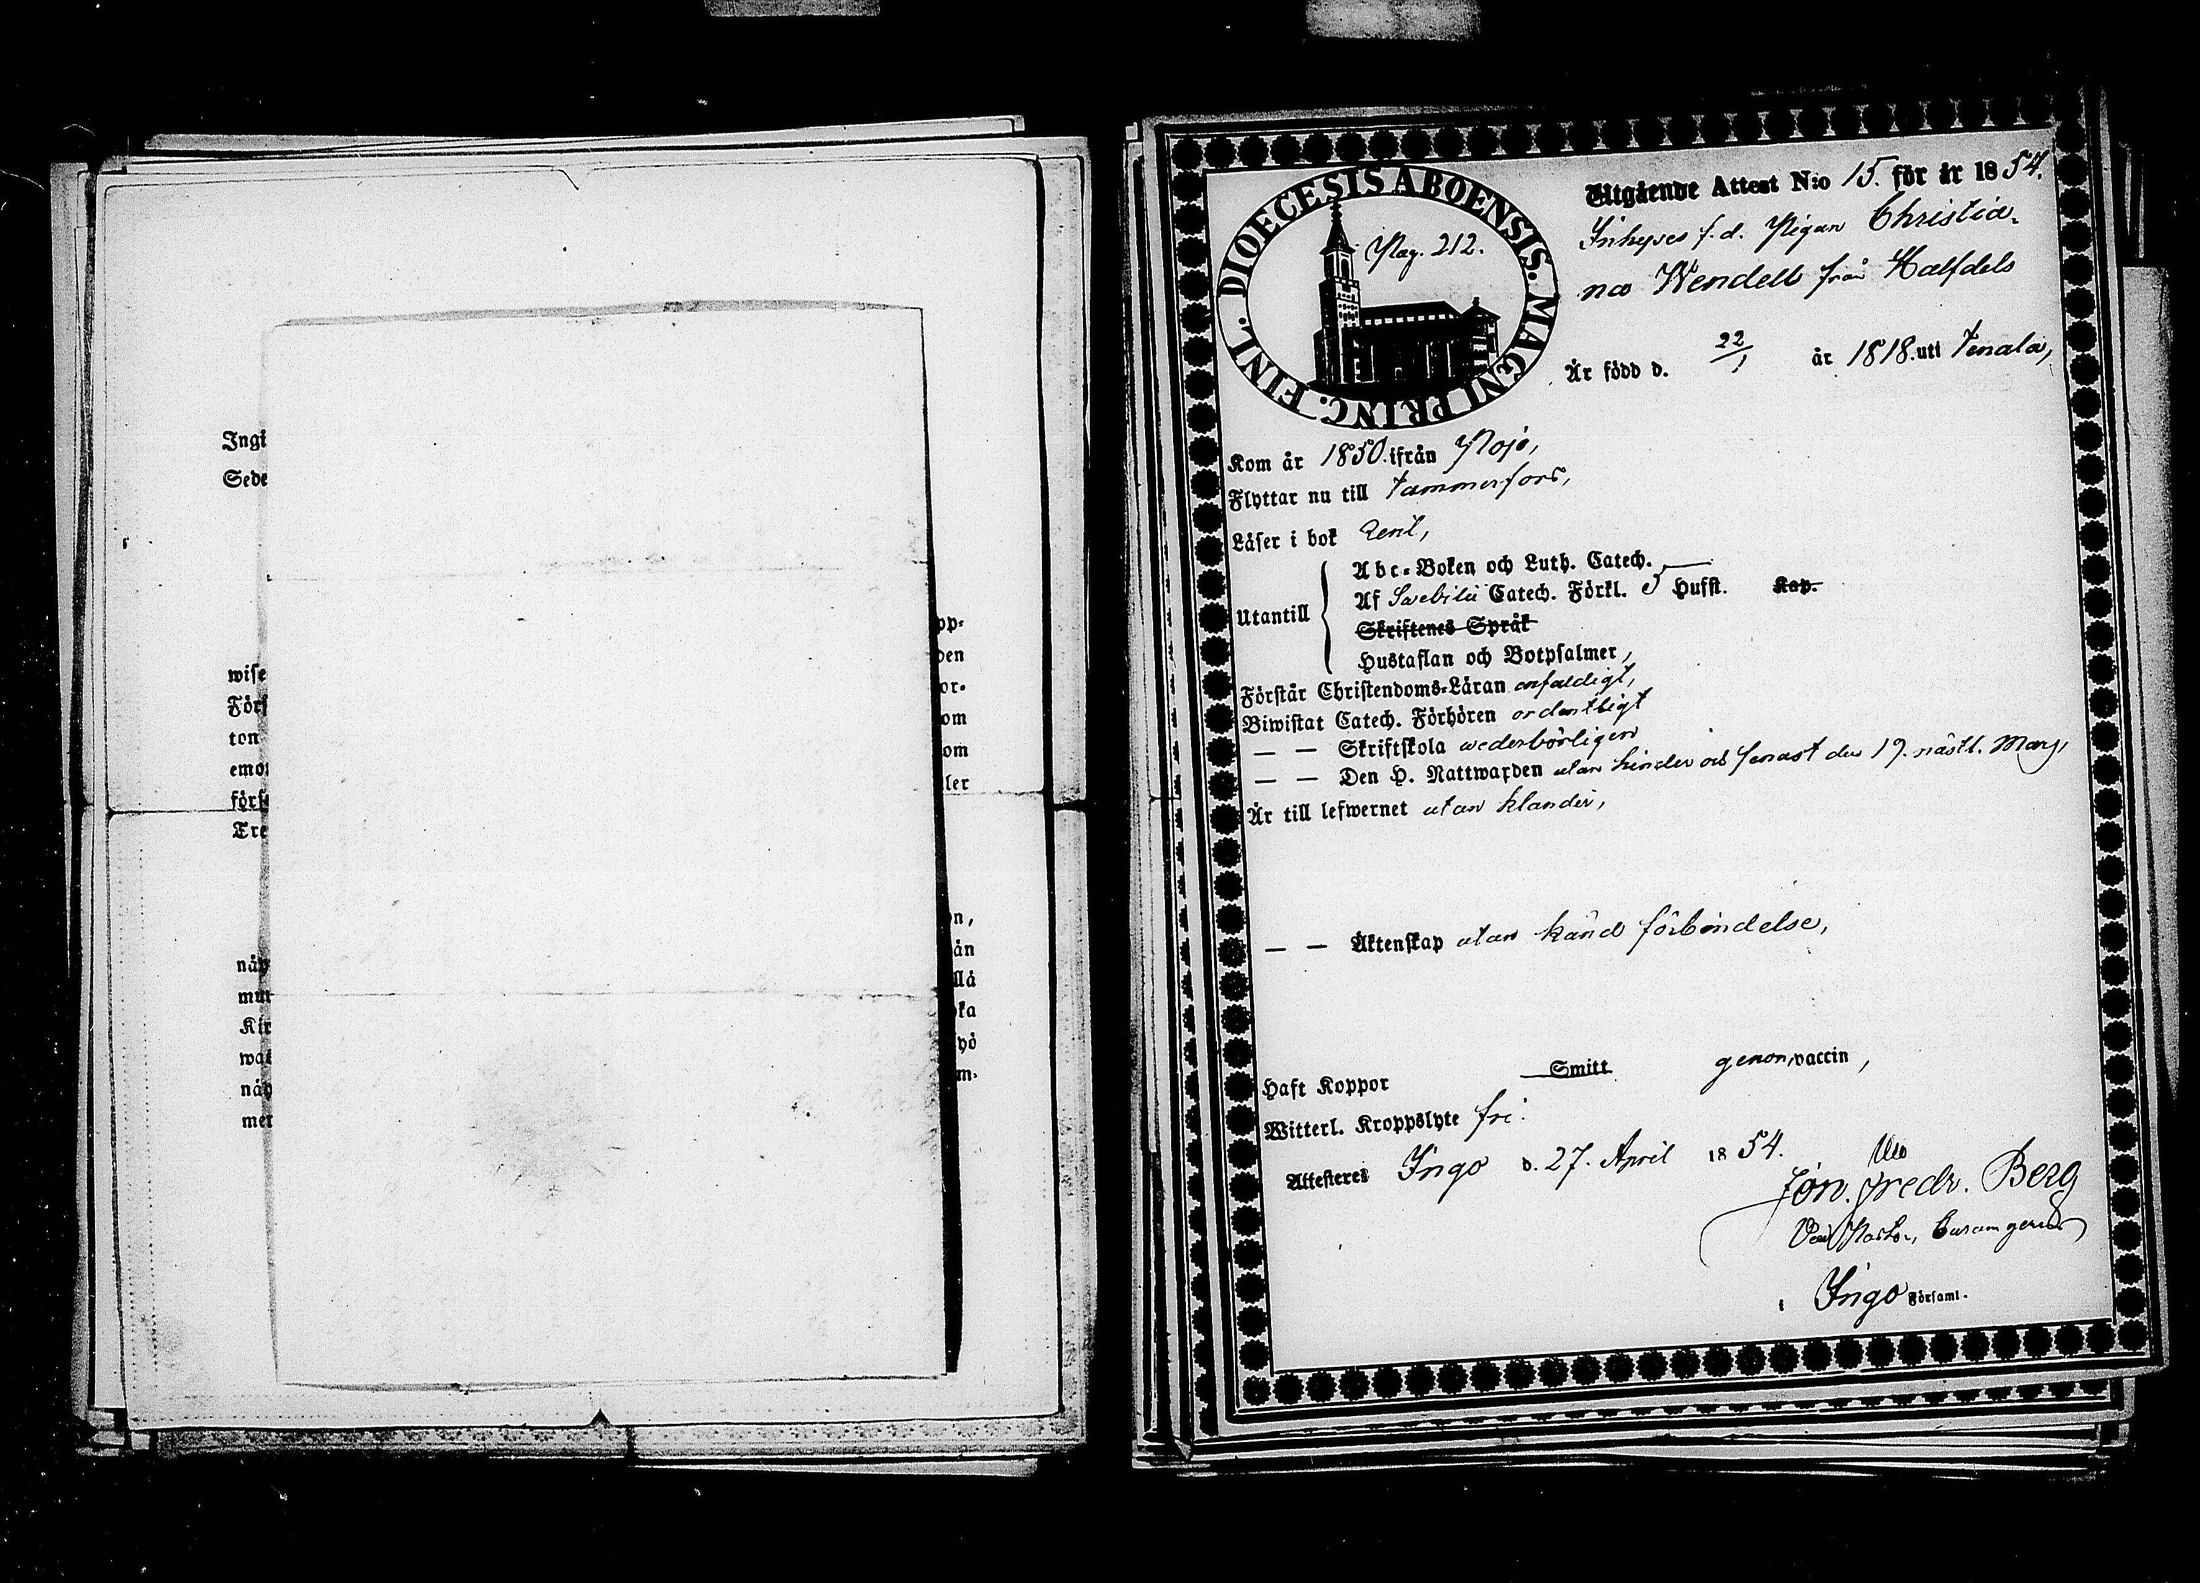 Ingi
Sede
wise
Förs
ton
emot
förs
Tre
näp
mun
Kir
wat
näp
mer
pp-
den
or-
om
om
ler
n,
ån
llå
ka
yö
m-
DIOECESIS ABOENSIS. MAGNI PRINC. FINL.
Pag. 212.
Utgående Attest N:o 15. för år 1854.
Inhyses f. d. Pigan Christia-
na Wendell från Halfdels
Är född d. 22/1 år 1818. uti Tenala,
Kom år 1850. ifrån Pojo,
Flyttar nu till Tammerfors,
Läser i bok
Utantill
Abc-Boken och Luth. Catech.
Af Svebilii Catech. Förkl. 5 Hufst. Kap.
Skriftenes Språk
Hustaflan och Botpsalmer,
Förstår Christendoms-Läran enfaldigt,
Biwistat Catech. Förhören ordentligt
— — Skriftskola wederbörligen
— — Den H. Nattwarden utan hinder och senast den 19. nästl. Mars,
Är till lefwernet utan klander,
— — Äktenskap utan känd förbindelse,
Haft Koppor Smitt genom vaccin,
Witterl. Kroppslyte fri.
Attesteres Ingo d. 27. April 1854.
Jon. Fredr. Berg
Vice Pastor,
i Ingo Församl.